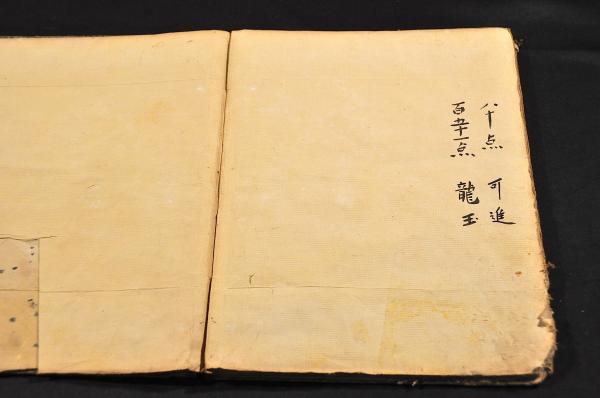 八十点 可進
百五十一点 龍玉